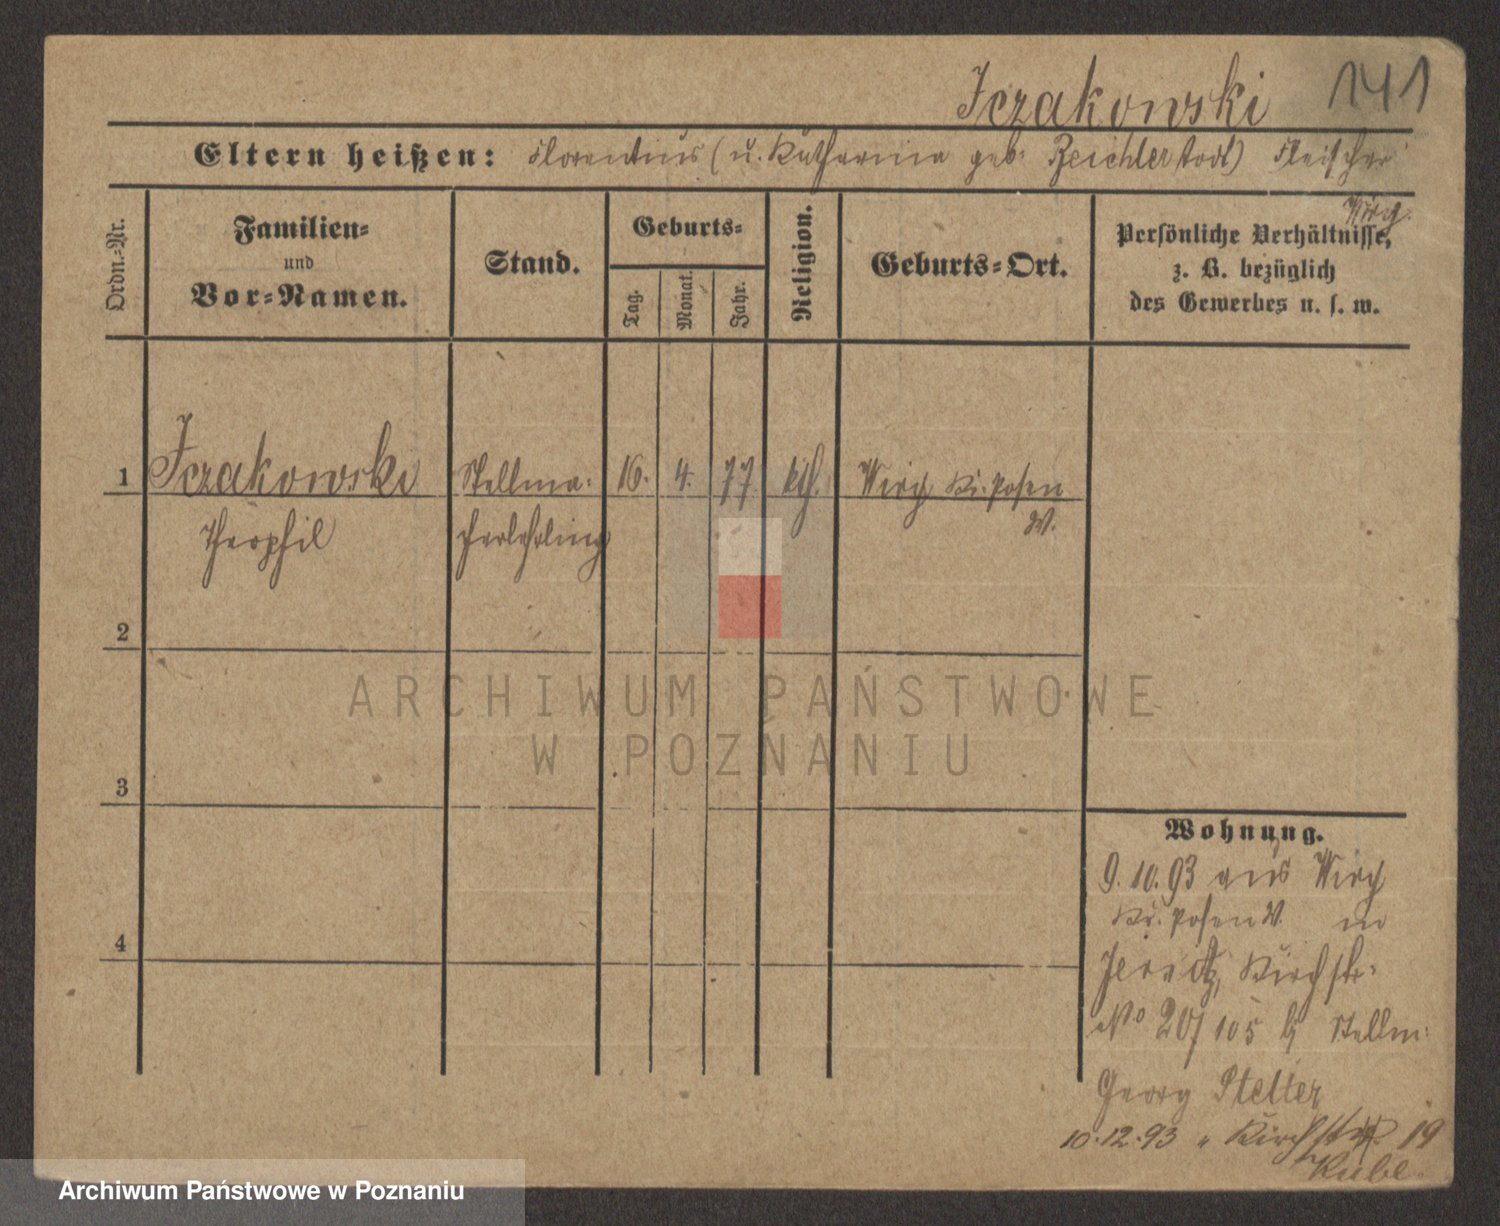 Iczakowski 141
Eltern heißen: Florentius (u. Katharina geb. Zeichler tod) Fleischer
Wirg.
Ordn.-Nr.
Familien-
und
Vor-Namen.
Stand.
Geburts-
Tag.
Monat.
Jahr.
Religion.
Geburts-Ort.
Persönliche Verhältnisse,
z. B. bezüglich
des Gewerbes u. s. w.
1 Iczakowski Stellma- 16. 4. 77 kth. Wiry Kr. Posen
W.
Theophil cherlehrling
2
3
4
Wohnung.
9.10.93 aus Wiry
Kr. Posen W. in
Jersitz, Kirchstr.
No 20/105 b Stellm.
Georg Stelter
10.12.93 " Kirchstr 19
ARCHIWUM PAŃSTWOWE
W POZNANIU
Archiwum Państwowe w Poznaniu